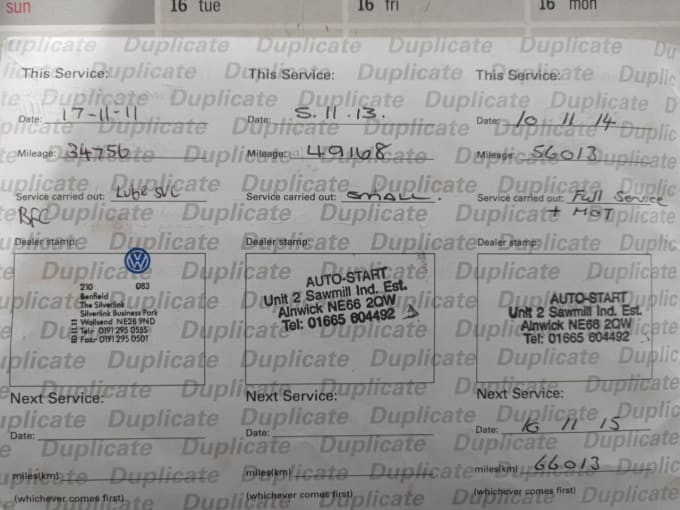 sun 16 tue 16 fri 16 mon
This Service:
Date: 17-11-11
Mileage: 34756
Service carried out: Lube SVC
BFC
Dealer stamp:
210 083
Benfield
The Silverlink
Silverlink Business Park
Wallsend NE28 9ND
Tel: 0191 295 0555
Fax: 0191 295 0501
Next Service:
Date:
miles(km)
(whichever comes first)
This Service:
Date: 5.11.13.
Mileage: 49168
Service carried out: SMALL.
Dealer stamp:
AUTO-START
Unit 2 Sawmill Ind. Est.
Alnwick NE66 2QW
Tel: 01665 604492
Next Service:
Date:
miles(km)
(whichever comes first)
This Service:
Date: 10 11 14
Mileage: 56013
Service carried out: Full Service
+ MOT
Dealer stamp:
AUTO-START
Unit 2 Sawmill Ind. Est.
Alnwick NE66 2QW
Tel: 01665 604492
Next Service:
Date: 10 11 15
miles(km) 66013
(whichever comes first)
Duplicate Duplicate Duplicate Duplicate Duplicate